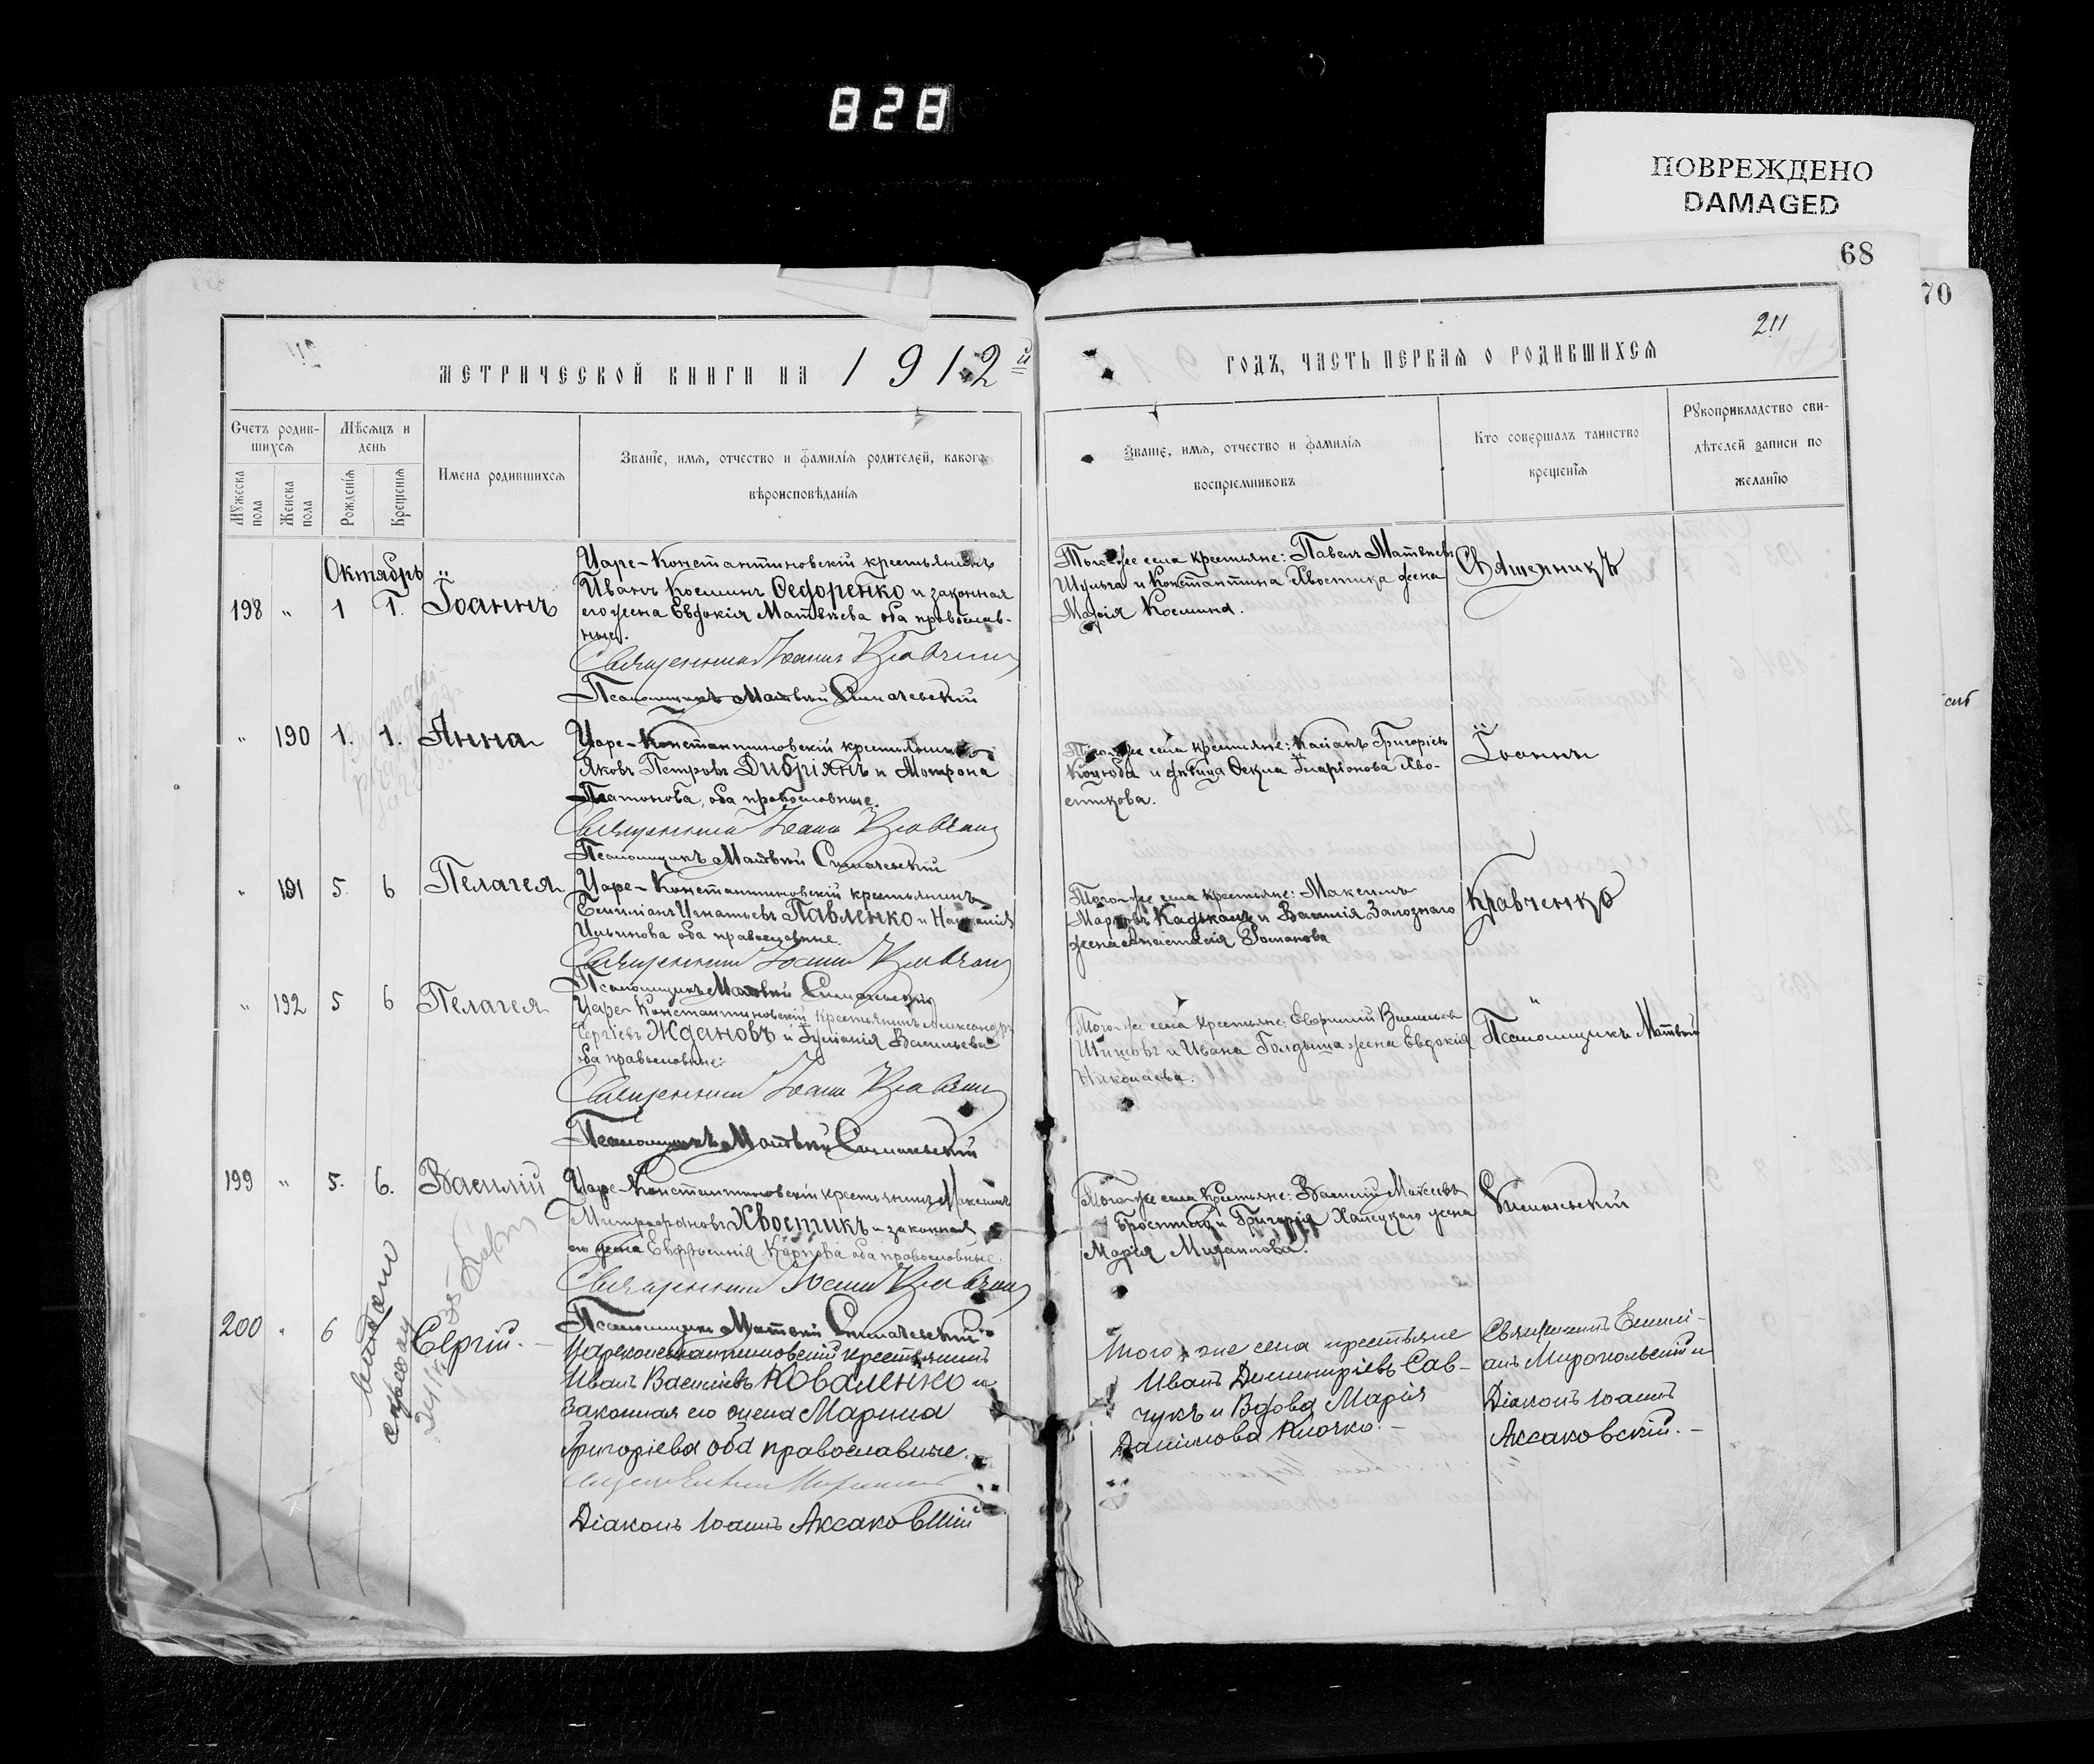 828
ПОВРЕЖДЕНО
DAMAGED
68
70
211
МЕТРИЧЕСКОЙ КНИГИ НА 1912й
ГОДЪ, ЧАСТЬ ПЕРВАЯ О РОДИВШИХСЯ
Счетъ родив-
шихся
Мѣсяцъ и
день
Мужеска
пола
Женска
пола
Рожденія
Крещенія
Имена родившихся
Званіе, имя, отчество и фамилія родителей, какого
вѣроисповѣданія
Званіе, имя, отчество и фамилія
воспріемниковъ
Кто совершалъ таинство
крещенія
Рукоприкладство сви-
дѣтелей записи по
желанію
Октябрь
198 " 1 1. Іоаннъ
Царе-Константиновскій крестьянинъ
Иванъ Козминъ Ѳедоренко и законная
его жена Евдокія Матвѣева оба православ-
ные.
Священникъ Іоаннъ Кравченко
Псаломщикъ Матвѣй Симачевскій
Того-же села крестьяне: Павелъ Матвѣевъ
Шульга и Константина Хвостика жена
Марія Козмина.
Священникъ
" 190 1. 1. Анна
Царе-Константиновскій крестьянинъ
Яковъ Петровъ Дибріянъ и Мотрона
Платонова, оба православные.
Священникъ Іоаннъ Кравченко
Псаломщикъ Матвѣй Симачевскій
Того-же села крестьяне: Касіанъ Григоріевъ
Коцюба и дѣвица Ѳекла Иларіонова Хво-
стикова.
Іоаннъ
" 191 5. 6 Пелагея
Царе-Константиновскій крестьянинъ
Емиліанъ Игнатьевъ Павленко и Наталія
Ильинова оба православные.
Священникъ Іоаннъ Кравченко
Псаломщикъ Матвѣй Симачевскій
Того-же села крестьяне: Максимъ
Марковъ Кадькалъ и Василія Залознаго
жена Анастасія Романова
Кравченко
" 192 5 6 Пелагея
Царе-Константиновскій крестьянинъ Александръ
Сергіевъ Ждановъ и Іуліанія Васильева
оба православные.
Священникъ Іоаннъ Кравченко
Псаломщикъ Матвѣй Симачевскій
Того-же села крестьяне: Евфимій Васильев
Шишовъ и Ивана Голдыша жена Евдокія
Николаева.
"
Псаломщикъ Матвѣй
199 " 5. 6. Василій
Царе-Константиновскій крестьянинъ Максимъ
Митрофановъ Хвостикъ и законная
его жена Евфросинія Карпова оба православные.
Священникъ Іоаннъ Кравченко
Псаломщикъ Матвѣй Симачевскій
Того-же села крестьяне: Василій Моисеевъ
и Григорія жена
Марія Михаилова.
Симачевскій
200 " 6 Сергій.
Цареконстантиновскій крестьянинъ
Иванъ Васильевъ Коваленко и
законная его жена Марина
Григоріева оба православные.
Діаконъ Іоаннъ Аксаковскій
Того же села крестьяне
Иванъ Димитріевъ Сав-
чукъ и Вдова Марія
Даніилова Клочко.
Священникъ Емили-
анъ Миропольскій и
Діаконъ Іоаннъ
Аксаковскій.